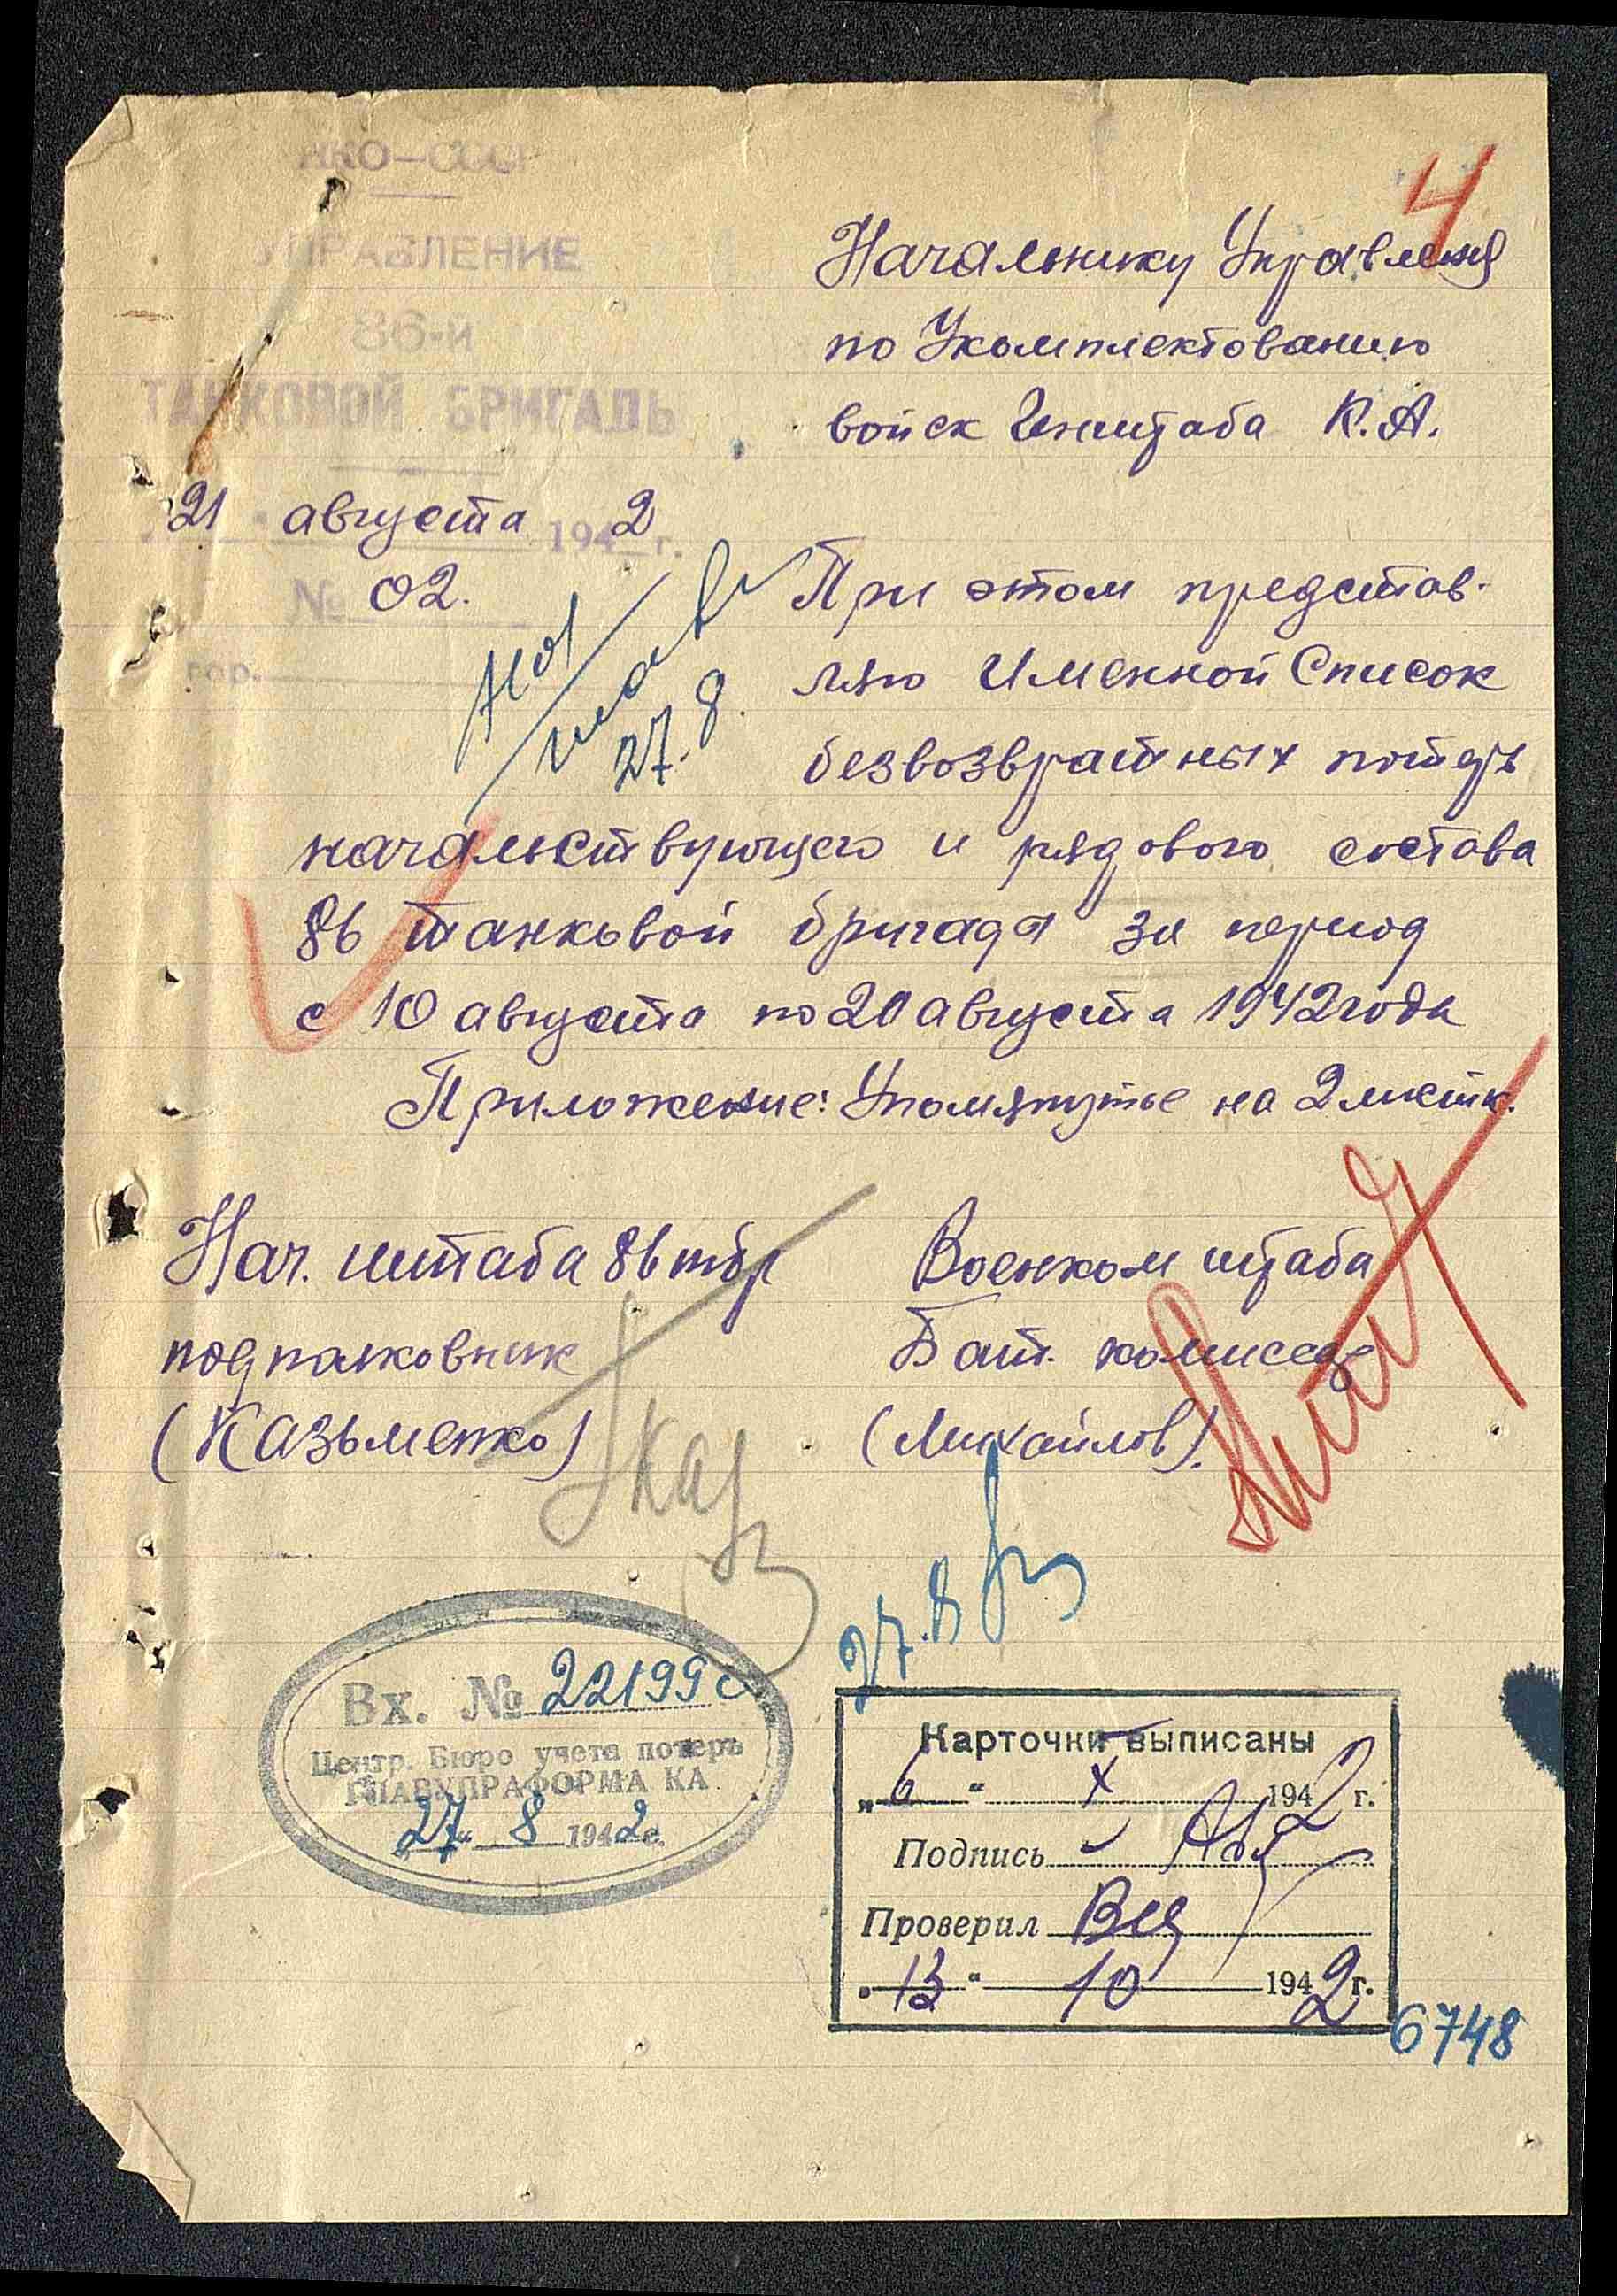 НКО-СССР
УПРАВЛЕНИЕ
86-й
ТАНКОВОЙ БРИГАДЫ
21 августа 1942 г.
№ 02.
гор.
4
Начальнику Управления
по Укомплектованию
войск Генштаба К.А.
При этом представ-
ляю Именной Список
безвозвратных потерь
27.8.
начальствующего и рядового состава
86 танковой бригады за период
с 10 августа по 20 августа 1942 года
Приложение: Упомянутое на 2 листк.
Нач. штаба 86 тбр
подполковник
(Казьменко)
Военком штаба
Бат. комиссар
(Михайлов).
27.8
Вх. № 22199с
Центр. Бюро учета потерь
ГЛАВУПРАФОРМА КА
"27" 8 1942 г.
Карточки выписаны
„6“ X 1942 г.
Подпись
Проверил
„13“ 10 1942 г.
6748